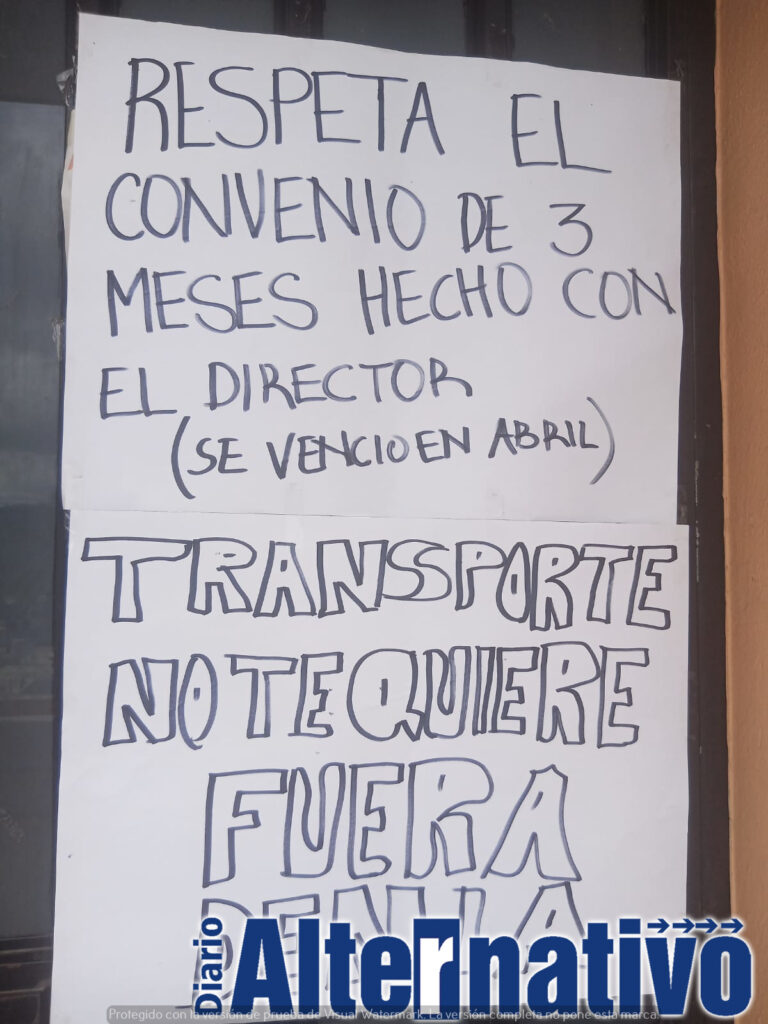 RESPETA EL
CONVENIO DE 3
MESES HECHO CON
EL DIRECTOR
(SE VENCIO EN ABRIL)
TRANSPORTE
NO TE QUIERE
FUERA
Diario Alternativo
Protegido con la versión de prueba de Visual Watermark. La versión completa no pone esta marca.